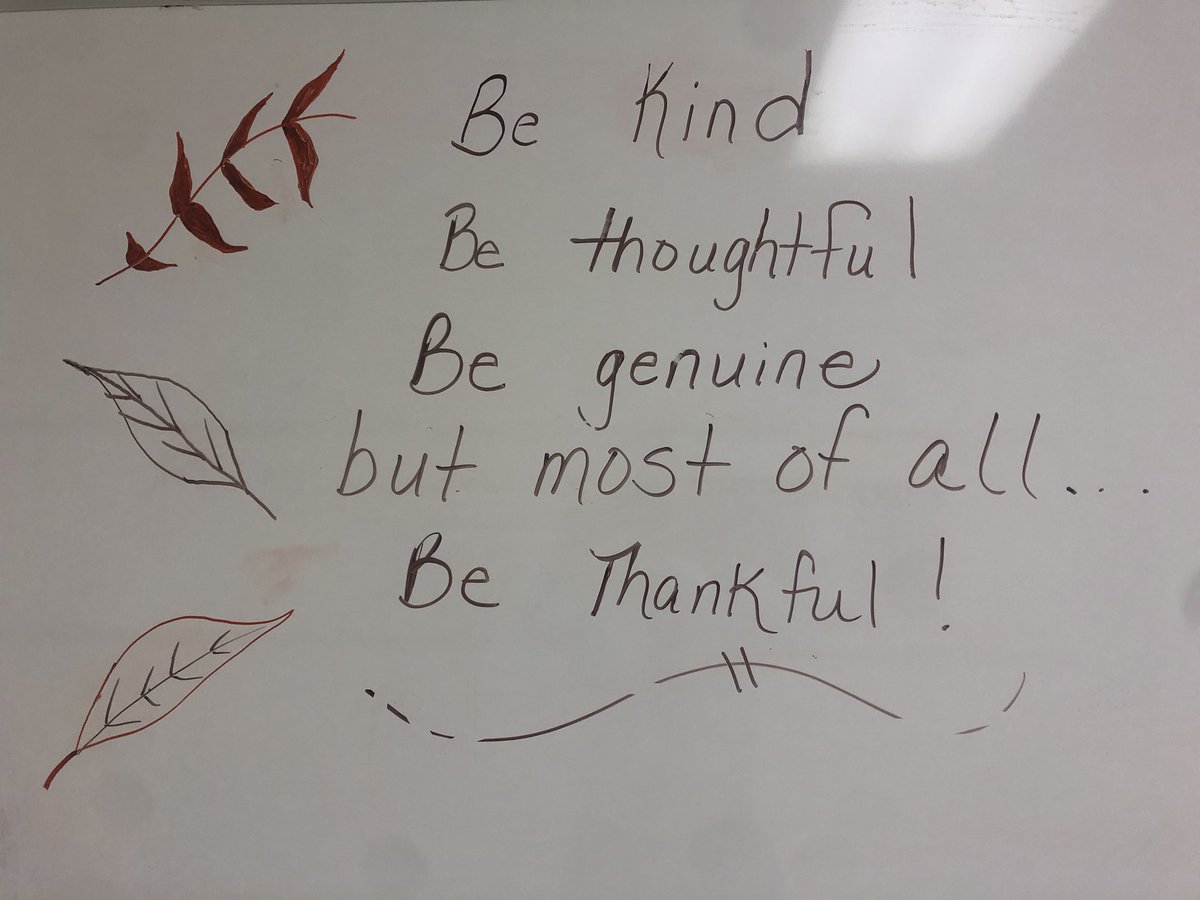 Be Kind
Be thoughtful
Be genuine
but most of all...
Be Thankful!